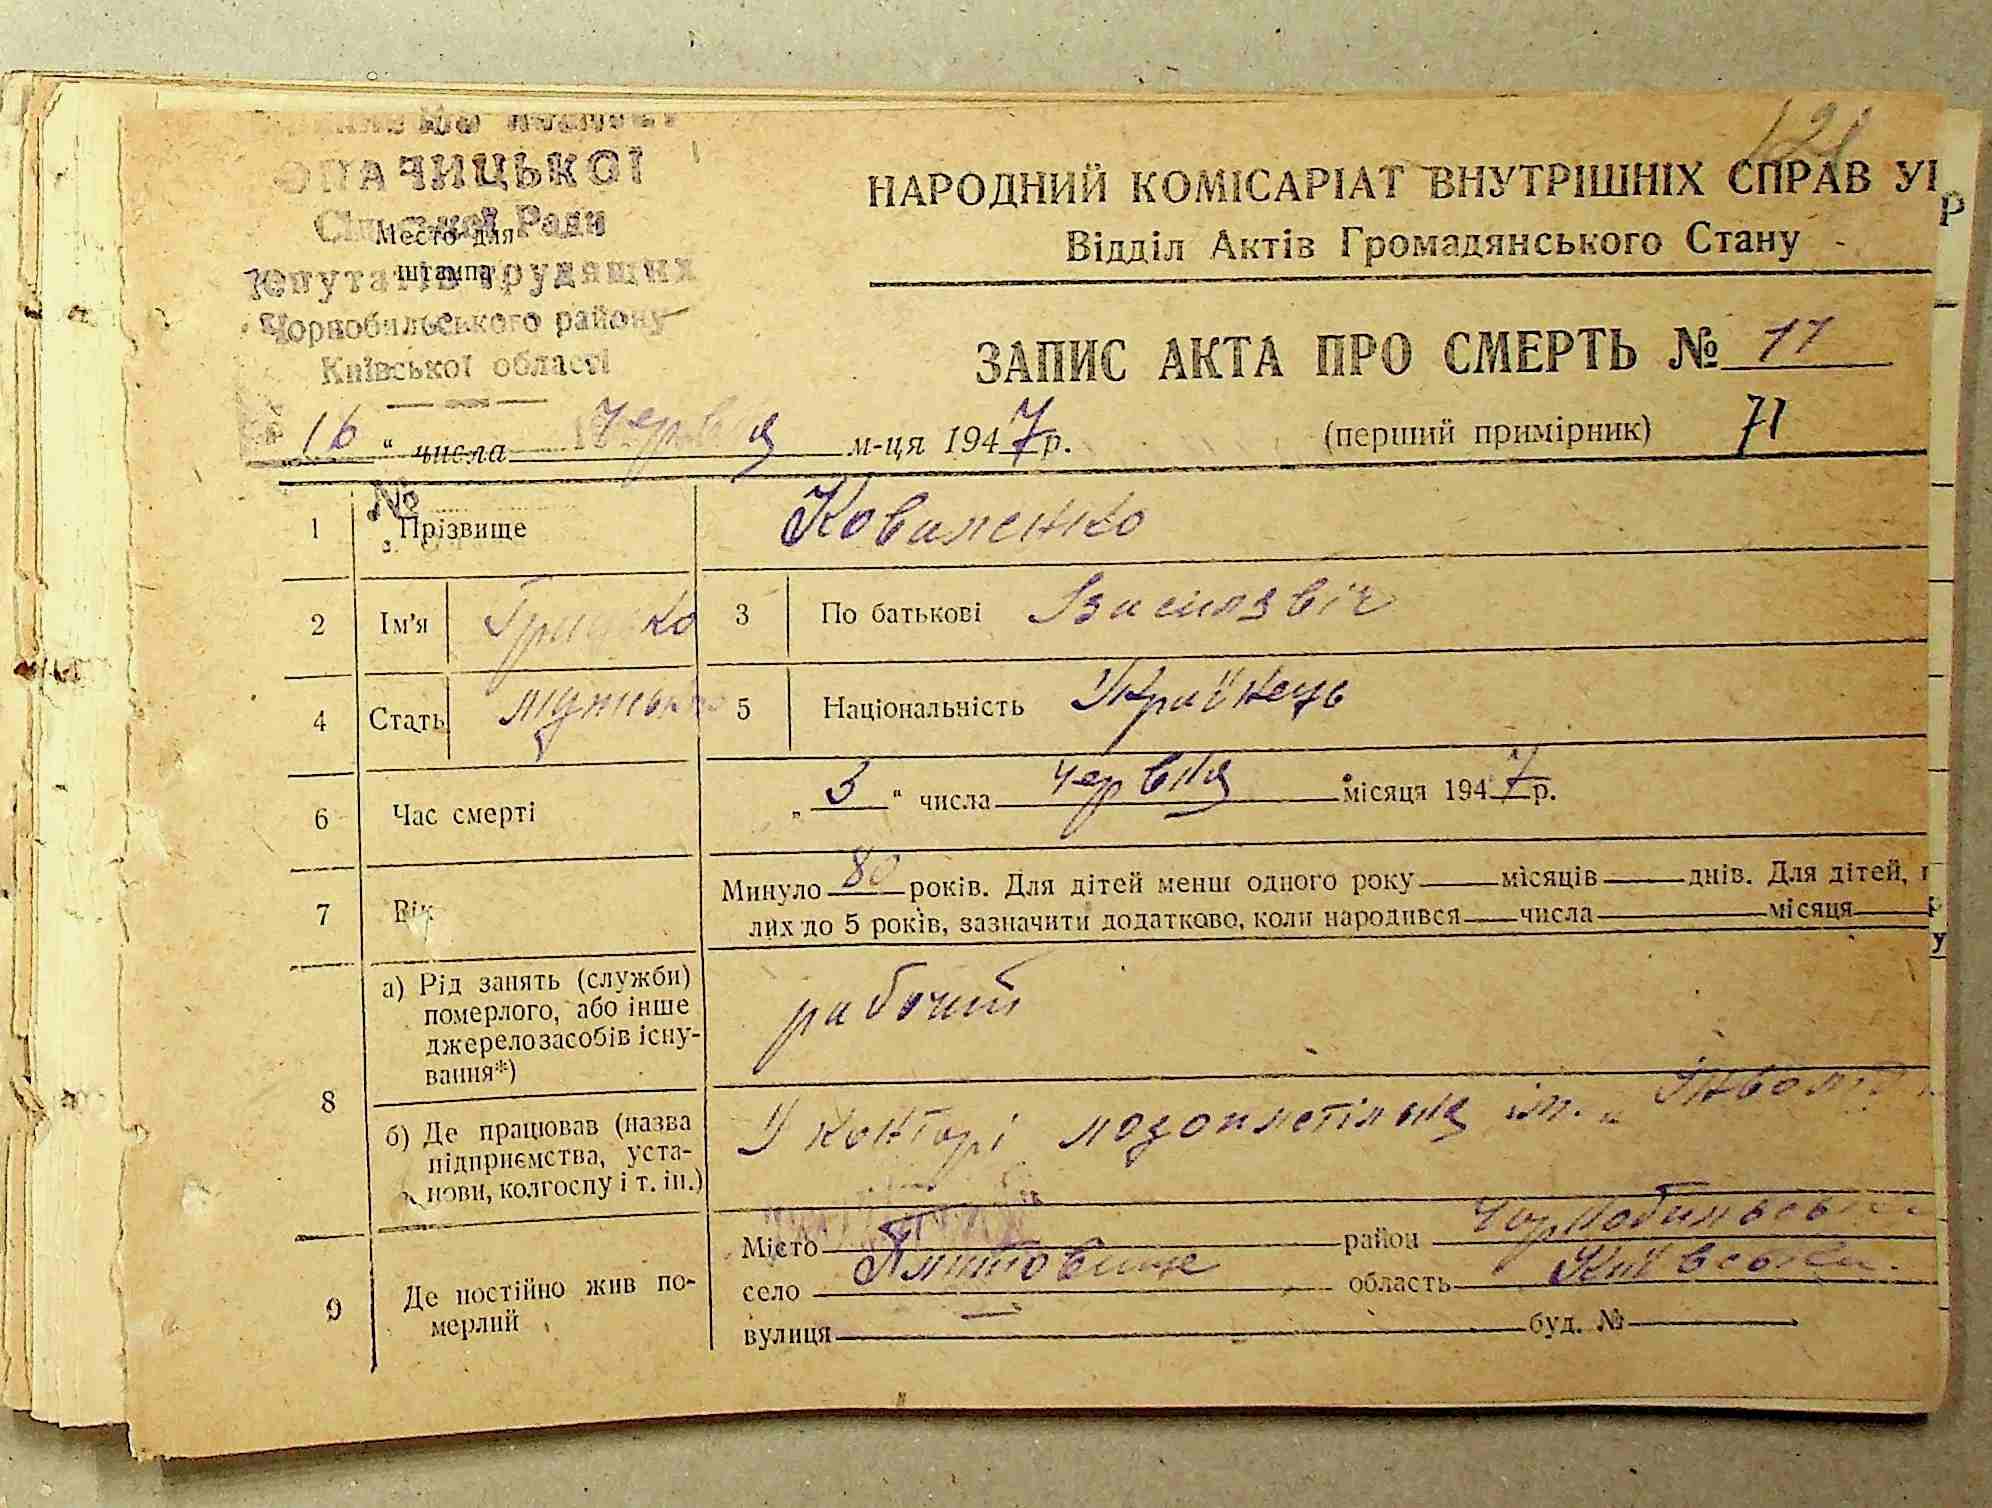 121
ОПАЧИЦЬКОЇ
Сільської Ради
Место для
штампа
депутатів трудящих
Чорнобильського району
Київської області
НАРОДНИЙ КОМІСАРІАТ ВНУТРІШНІХ СПРАВ УР
Відділ Актів Громадянського Стану
ЗАПИС АКТА ПРО СМЕРТЬ № 11
„16“ числа червня м-ця 1947 р. (перший примірник) 71
№
1 Прізвище Коваленко
2 Ім'я Грицько 3 По батькові Василявіч
4 Стать мужська 5 Національність Українець
6 Час смерті „3“ числа червня місяця 1947 р.
7 Вік Минуло 80 років. Для дітей менш одного року місяців днів. Для дітей,
лих до 5 років, зазначити додатково, коли народився числа місяця
8 а) Рід занять (служби) рабочий
померлого, або інше
джерело засобів існу-
вання*)
б) Де працював (назва У конторі лозоплетільня ім. „
підприємства, уста-
нови, колгоспу і т. ін.)
9 Де постійно жив по- Місто район Чорнобильськ
мерлий село область Київська
вулиця буд. №